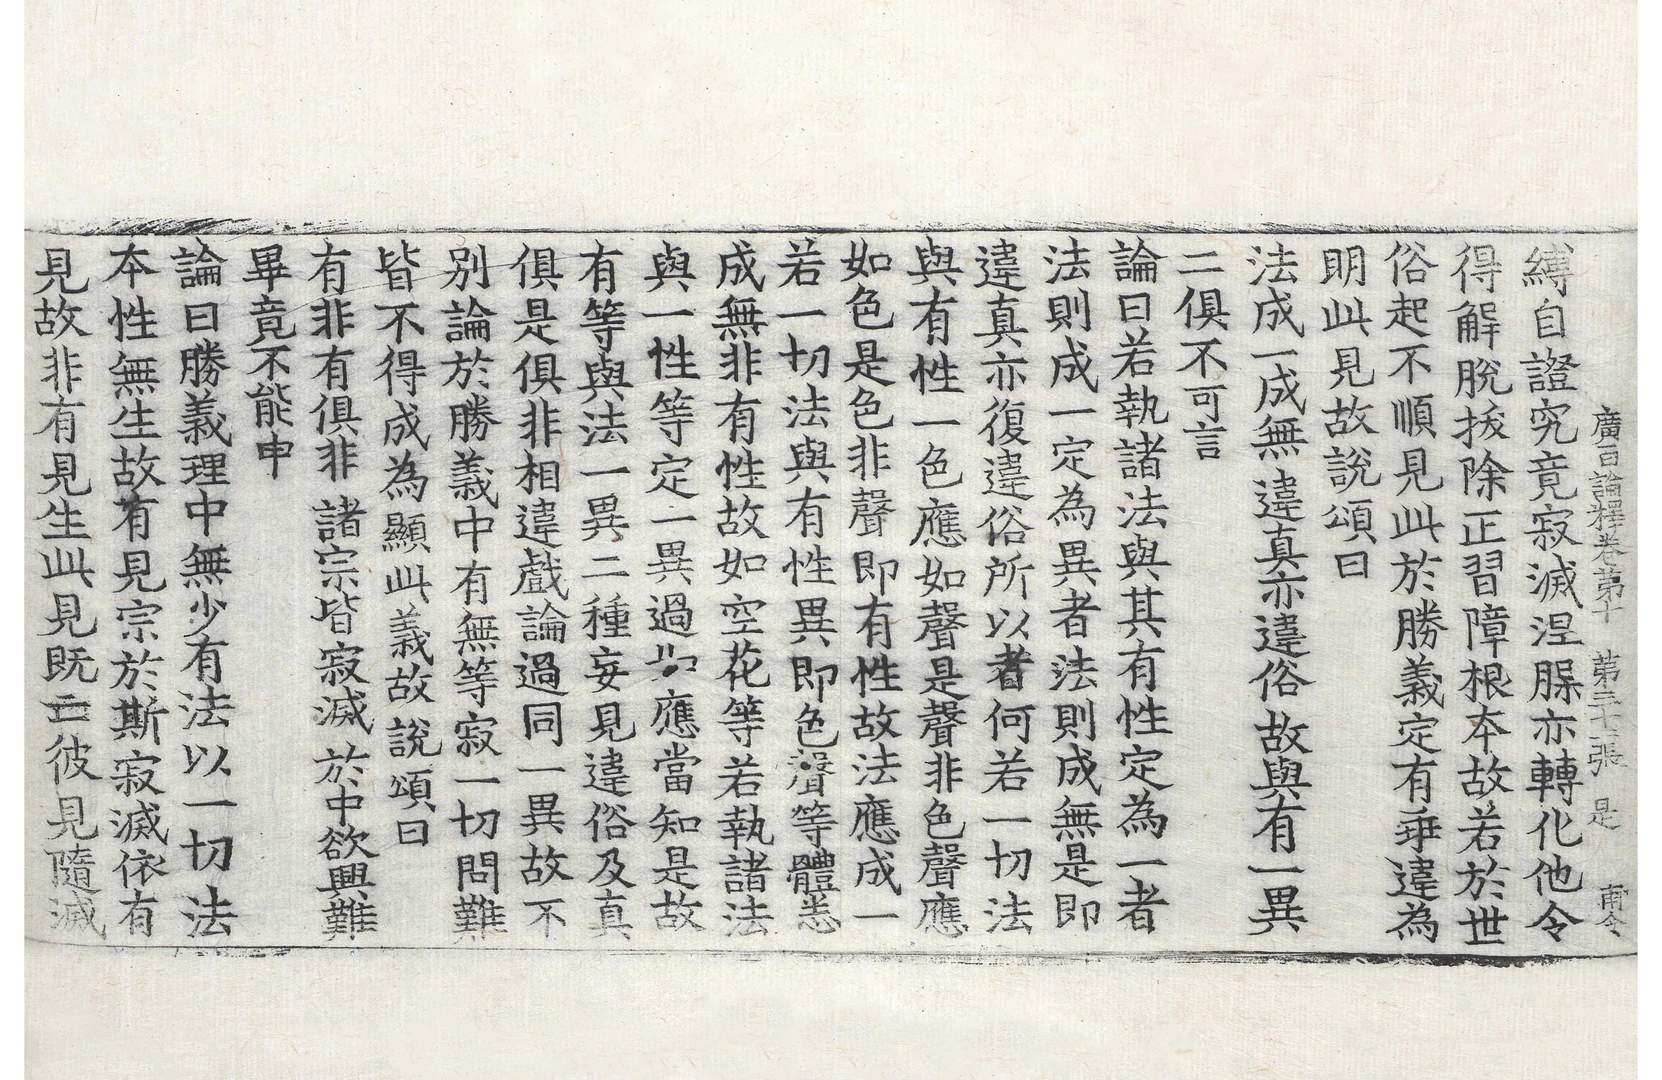 廣百論釋卷第十　第三十張　是　甫令
縛自證究竟寂滅涅槃亦轉化他令
得解脫拔除正習障根本故若於世
俗起不順見此於勝義定有乖違為
明此見故說頌曰
法成一成無　違真亦違俗　故與有一異
二俱不可言
論曰若執諸法與其有性定為一者
法則成一定為異者法則成無是即
違真亦復違俗所以者何若一切法
與有性一色應如聲是聲非色聲應
如色是色非聲即有性故法應成一
若一切法與有性異即色聲等體悉
成無非有性故如空花等若執諸法
與一性等定一異過此應當知是故
有等與法一異二種妄見違俗及真
俱是俱非相違戲論過同一異故不
別論於勝義中有無等寂一切問難
皆不得成為顯此義故說頌曰
有非有俱非　諸宗皆寂滅　於中欲興難
畢竟不能申
論曰勝義理中無少有法以一切法
本性無生故有見宗於斯寂滅依有
見故非有見生此見既亡彼見隨滅